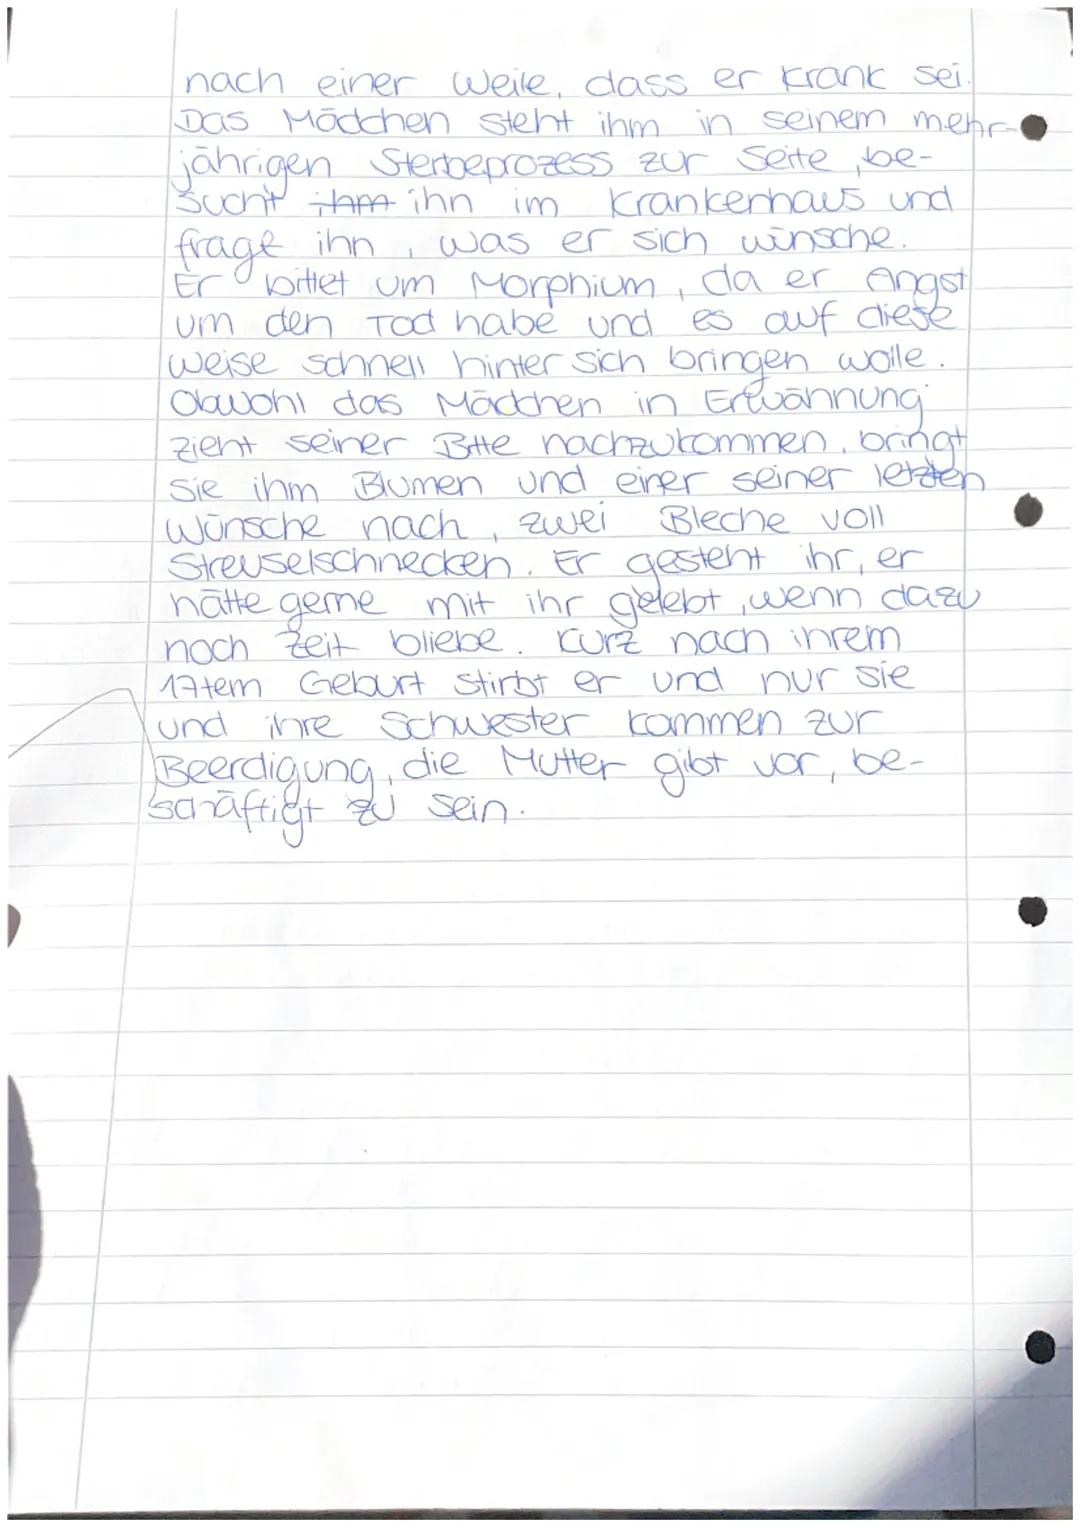 nach einer Weile, dass er krank sei.
Das Mädchen steht ihm in seinem mehr-
jährigen Sterbeprozess zur Seite, be-
sucht ihm ihn im Krankenhaus und
frage ihn, was er sich wünsche.
Er bittet um Morphium, da er Angst
um den Tod habe und es auf diese
weise schnell hinter sich bringen wolle.
Obwohl das Mädchen in Erwähnung
zieht seiner Bitte nachzukommen, bringt
sie ihm Blumen und einer seiner letzten
Wünsche nach, zwei Bleche voll
Streuselschnecken. Er gesteht ihr, er
hätte gerne mit ihr gelebt, wenn dazu
noch Zeit bliebe. Kurz nach ihrem
17tem Geburt stirbt er und nur sie
und ihre Schwester kommen zur
Beerdigung, die Mutter gibt vor, be-
schäftigt zu sein.